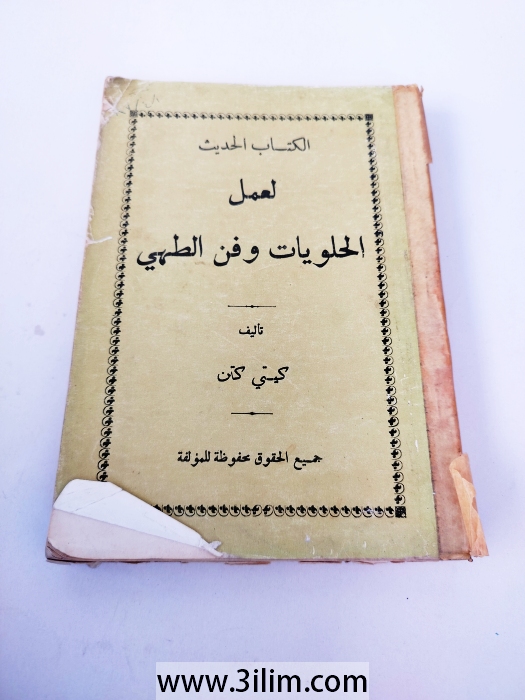 الكتاب الحديث
لعمل
الحلويات وفن الطهي
تأليف
كيتي كتن
جميع الحقوق محفوظة للمؤلفة
www.3ilim.com